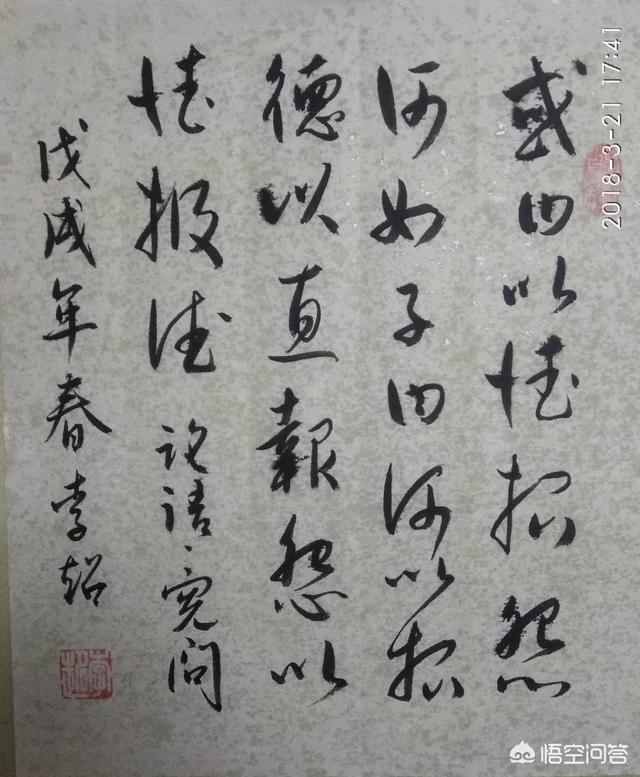 或曰以德报怨
何如子曰何以报
德以直報怨以
德报德 论语·宪问
戊戌年春李超
2018-3-21 17:41
悟空问答